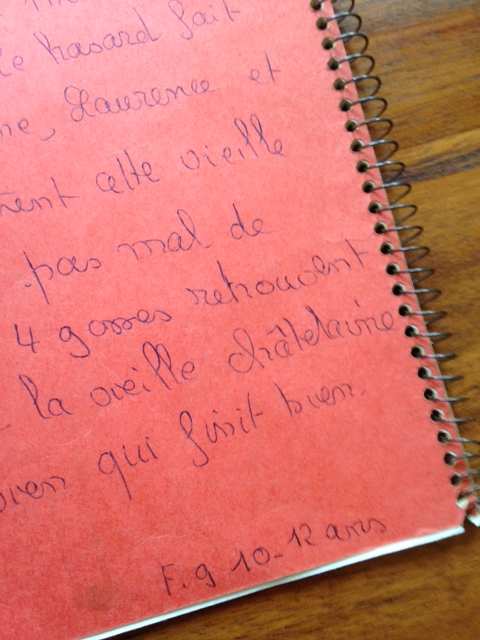 le hasard fait
ne, Laurence et
nent cette vieille
pas mal de
4 gosses retrouvent
la vieille châtelaine
bien qui finit bien.
F. g 10-12 ans